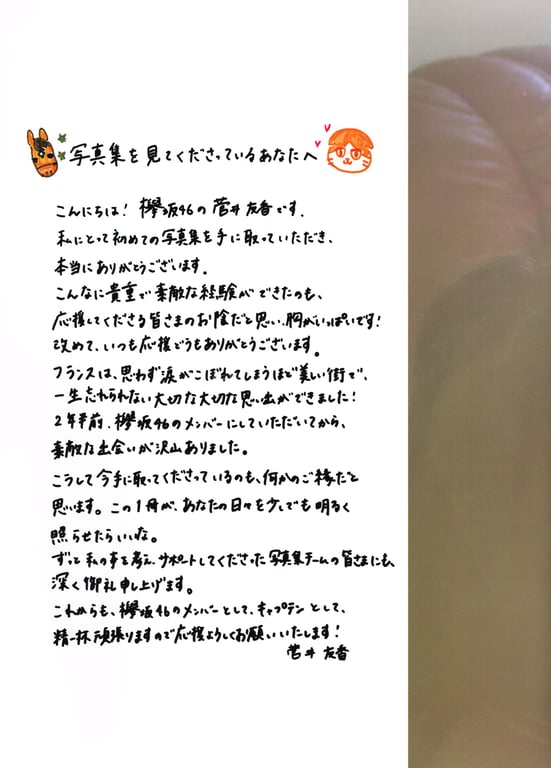 写真集を見てくださっているあなたへ
こんにちは！欅坂46の菅井友香です。
私にとって初めての写真集を手に取っていただき、
本当にありがとうございます。
こんなに貴重で素敵な経験ができたのも、
応援してくださる皆さまのお陰だと思い、胸がいっぱいです！
改めて、いつも応援どうもありがとうございます。
フランスは、思わず涙がこぼれてしまうほど美しい街で、
一生忘れられない大切な大切な思い出ができました！
2年半前、欅坂46のメンバーにしていただいてから、
素敵な出会いが沢山ありました。
こうして今手に取ってくださっているのも、何かのご縁だと
思います。この1冊が、あなたの日々を少しでも明るく
照らせたらいいな。
ずっと私の事を考え、サポートしてくださった写真集チームの皆さまにも、
深く御礼申し上げます。
これからも、欅坂46のメンバーとして、キャプテンとして、
精一杯頑張りますので応援よろしくお願いいたします！
菅井友香